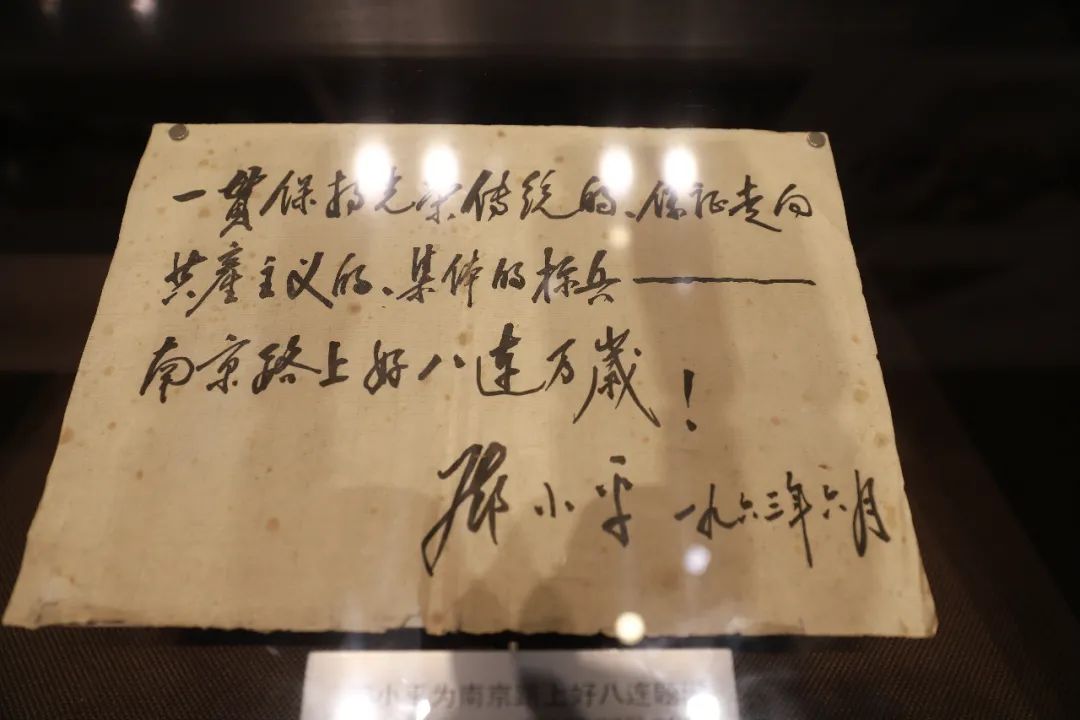 一貫保持光荣传统的、保证走向
共產主义的、集体的标兵——
南京路上好八连万歲！
鄧小平 一九六三年六月
小平为南京路上好八连题